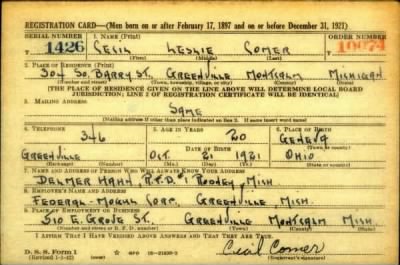 REGISTRATION CARD—(Men born on or after February 17, 1897 and on or before December 31, 1921)
SERIAL NUMBER 1. NAME (Print) ORDER NUMBER
1426 CECIL LESLIE COMER 10074
(First) (Middle) (Last)
2. PLACE OF RESIDENCE (Print)
304 SO. BARRY ST. GREENVILLE MONTCALM MICHIGAN
(Number and street) (Town, township, village, or city) (County) (State)
[THE PLACE OF RESIDENCE GIVEN ON THE LINE ABOVE WILL DETERMINE LOCAL BOARD
JURISDICTION; LINE 2 OF REGISTRATION CERTIFICATE WILL BE IDENTICAL]
3. MAILING ADDRESS
SAME
(Mailing address if other than place indicated on line 2. If same insert word same)
4. TELEPHONE 5. AGE IN YEARS 6. PLACE OF BIRTH
346 20 GENEVA
DATE OF BIRTH (Town or county)
GREENVILLE OCT. 21 1921 OHIO
(Exchange) (Number) (Mo.) (Day) (Yr.) (State or country)
7. NAME AND ADDRESS OF PERSON WHO WILL ALWAYS KNOW YOUR ADDRESS
DELMER HAHN, R.F.D. #1 RODNEY, MICH
8. EMPLOYER'S NAME AND ADDRESS
FEDERAL-MOGUL CORP. GREENVILLE, MICH.
9. PLACE OF EMPLOYMENT OR BUSINESS
510 E. GROVE ST. GREENVILLE MONTCALM MICH.
(Number and street or R. F. D. number) (Town) (County) (State)
I AFFIRM THAT I HAVE VERIFIED ABOVE ANSWERS AND THAT THEY ARE TRUE.
D. S. S. Form 1
Cecil Comer